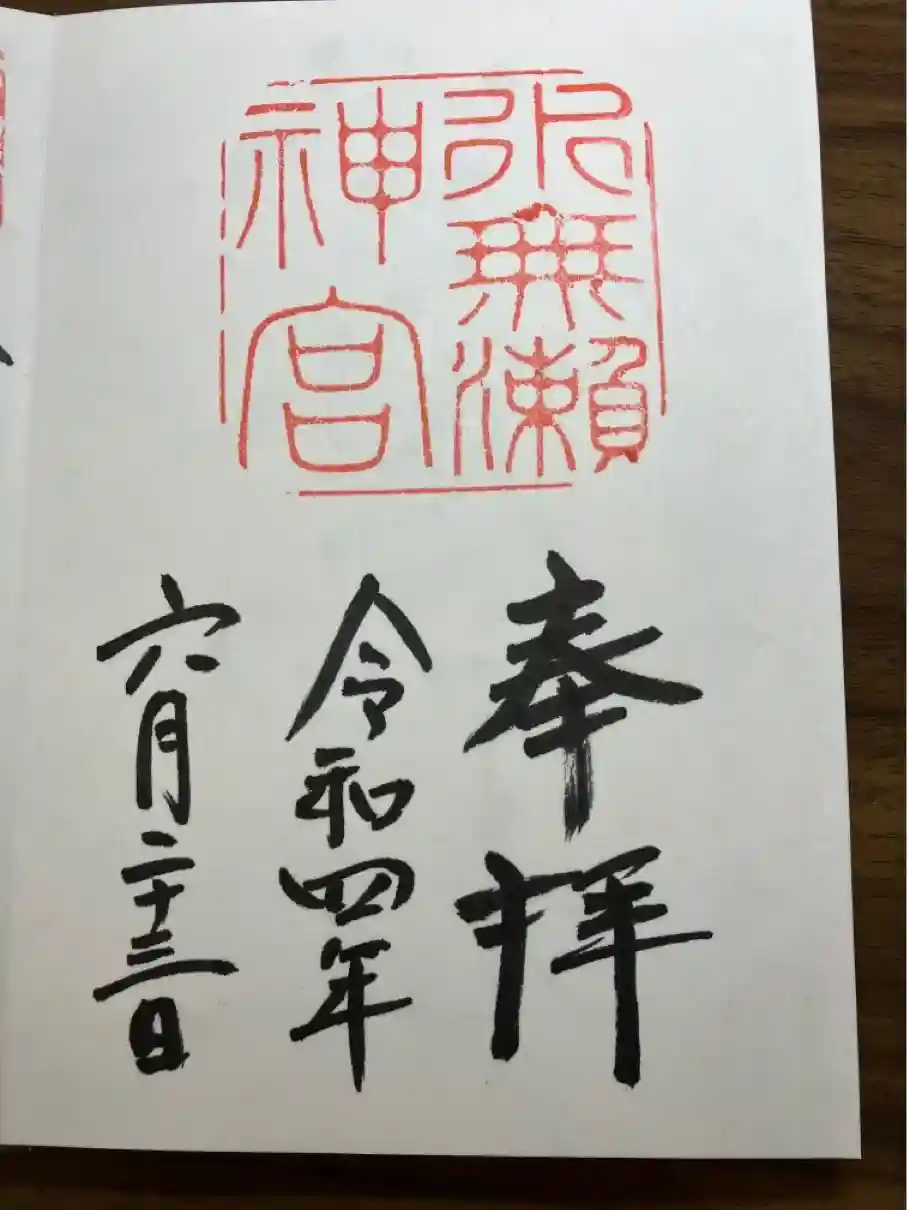 水無瀬
神宮
奉拝
令和四年
六月二十三日